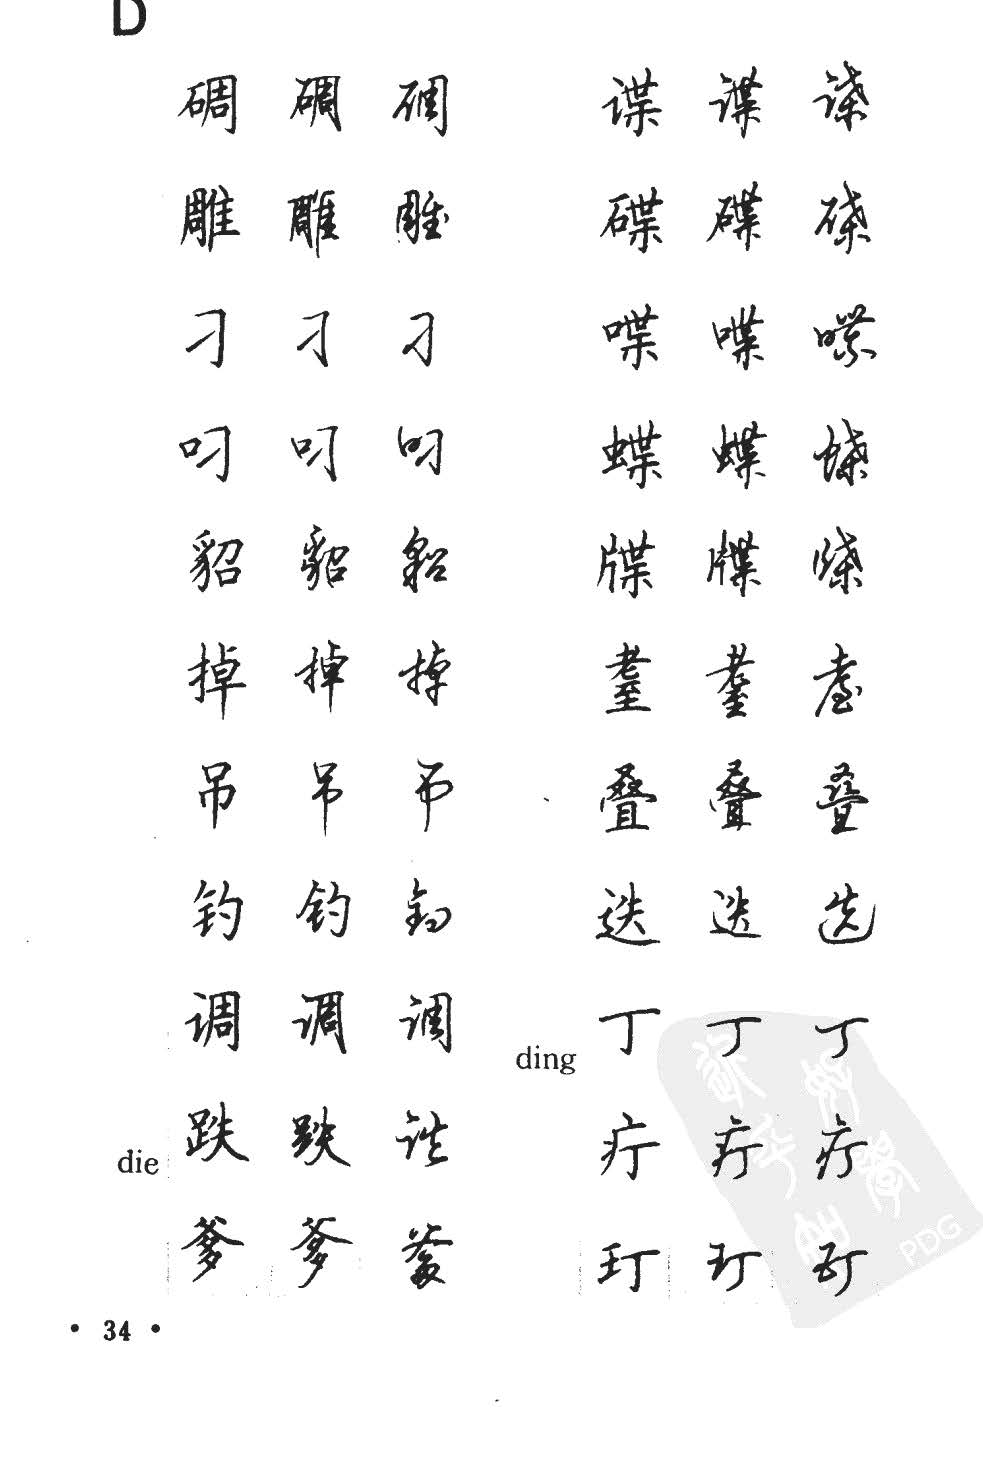 D
碉 碉 碉
雕 雕 雕
刁 刁 刁
叼 叼 叼
貂 貂 貂
掉 掉 掉
吊 吊 吊
钓 钓 钓
调 调 调
die 跌 跌 跌
爹 爹 爹
谍 谍 谍
碟 碟 碟
喋 喋 喋
蝶 蝶 蝶
牒 牒 牒
耋 耋 耋
叠 叠 叠
迭 迭 迭
ding 丁 丁 丁
疔 疔 疔
玎 玎 玎
PDG
• 34 •